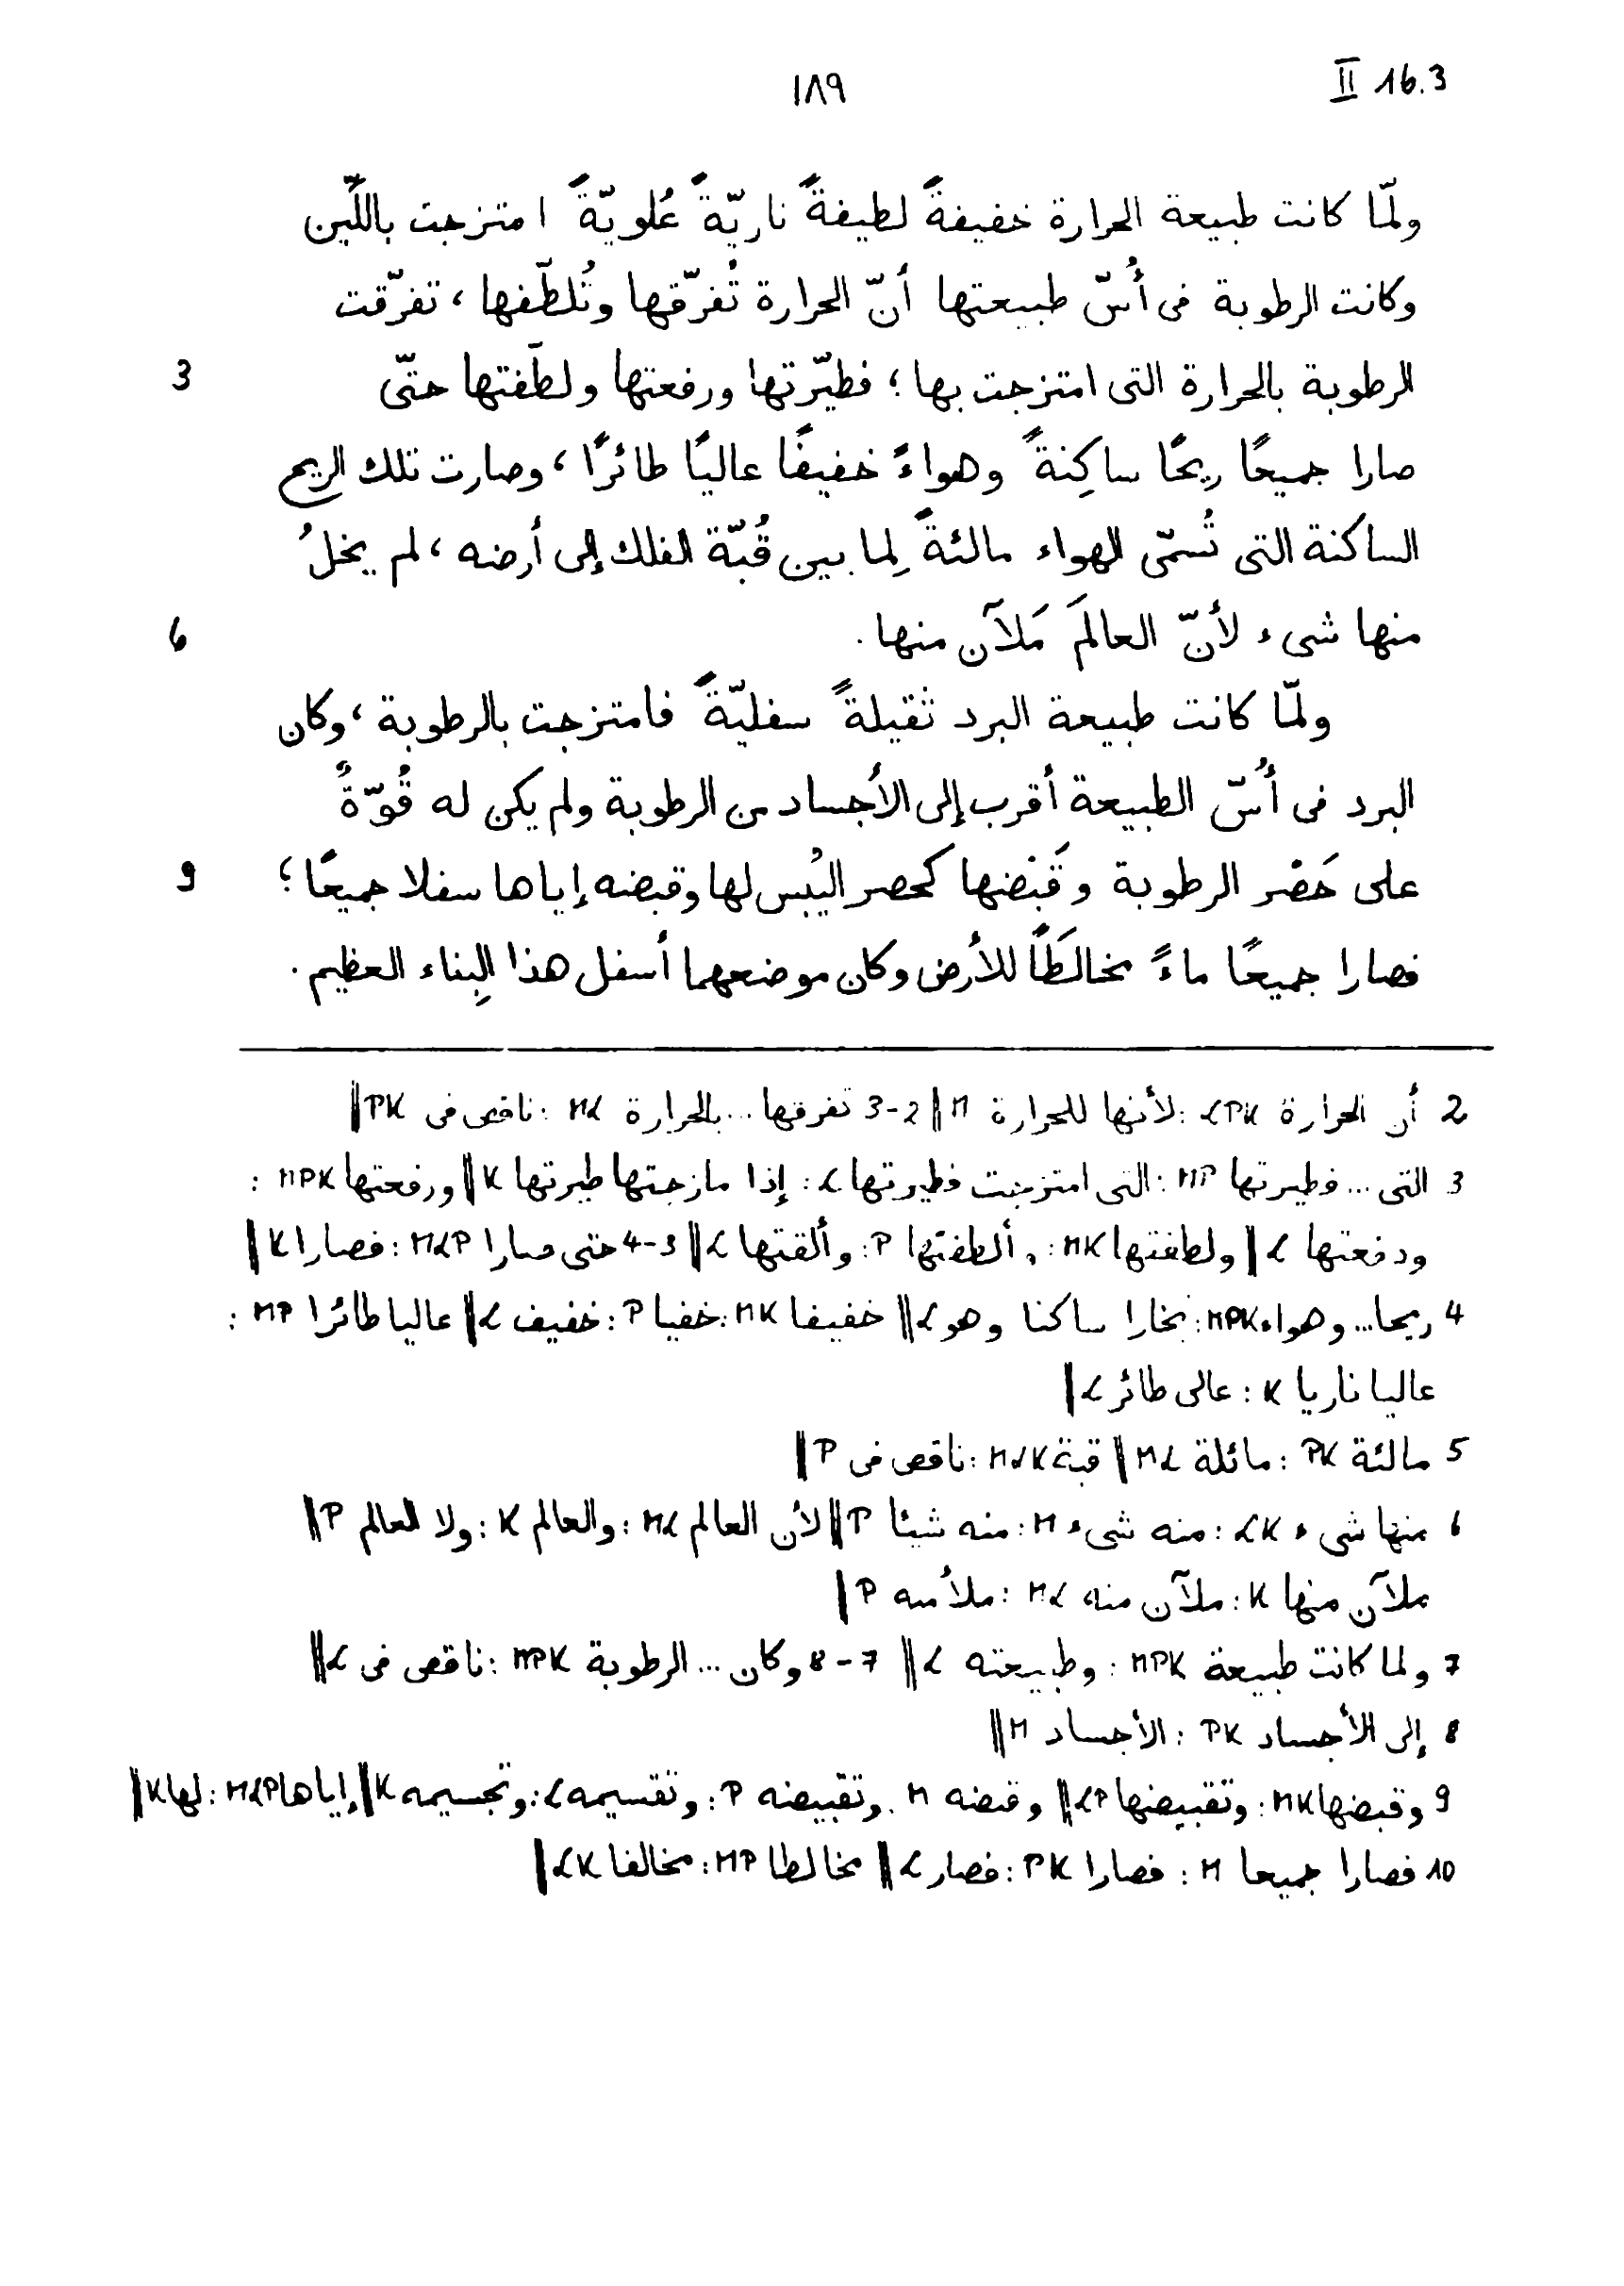 ١٨٩
II 16.3
ولمّا كانت طبيعة الحرارة خفيفةً لطيفةً ناريّةً عُلويّةً امتزجت باللّين
وكانت الرطوبة فى أُسّ طبيعتها أنّ الحرارة تُفرّقها وتُلطّفها، تفرّقت
3 الرطوبة بالحرارة التى امتزجت بها؛ فطيّرتها ورفعتها ولطّفتها حتّى
صارا جميعًا ريحًا ساكِنةً وهواءً خفيفًا عاليًا طائرًا، وصارت تلك الريح
الساكنة التى تُسمّى الهواء مالئةً لِما بين قُبّة الفلك إلى أرضه، لم يخلُ
6 منها شىء لأنّ العالَمَ مَلآن منها.
ولمّا كانت طبيعة البرد ثقيلةً سفليّةً فامتزجت بالرطوبة، وكان
البرد فى أُسّ الطبيعة أقرب إلى الأجساد من الرطوبة ولم يكن له قُوّةٌ
9 على حَصْر الرطوبة وقَبْضها كحصر اليُبس لها وقبضه إياها سفلا جميعًا؛
فصارا جميعًا ماءً مخالَطًا للأرض وكان موضعهما أسفل هذا البِناء العظيم.
2 أن الحرارة LPK: لأنها للحرارة M || 2-3 تفرقها... بالحرارة ML: ناقص فى PK ||
3 التى... فطيرتها MP: التى امتزجت فطيرتها L: إذا مازجتها طيرتها K || ورفعتها MPK:
ودفعتها L || ولطفتها MK: وألطفتها P: وألقتها L || 3-4 حتى صارا MLP: فصارا K ||
4 ريحا... وهواء MPK: بخارا ساكنا وهو L || خفيفا MK: خفيا P: خفيف L || عاليا طائرا MP:
عاليا ناريا K: عالى طائر L ||
5 مالئة PK: مائلة ML || قبة MLK: ناقص فى P ||
6 منها شىء LK: منه شىء M: منه شيئا P || لأن العالم ML: والعالم K: ولا العالم P ||
ملآن منها K: ملآن منه ML: ملأ منه P ||
7 ولما كانت طبيعة MPK: وطبيعته L || 7-8 وكان... الرطوبة MPK: ناقص فى L ||
8 إلى الأجساد PK: الأجساد M ||
9 وقبضها MK: وتقبيضها LP || وقبضه M: وتقبيضه P: وتقسيمه L: وتجسيمه K || إياها MLP: لها K ||
10 فصارا جميعا M: فصارا PK: فصار L || مخالطا MP: مخالفا LK ||